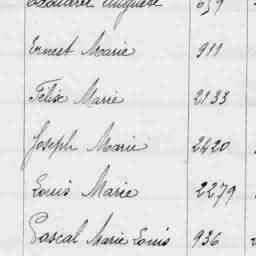 Edouard Auguste 659
Ernest Marie 911
Félix Marie 2133
Joseph Marie 2420
Louis Marie 2279
Pascal Marie Louis 936